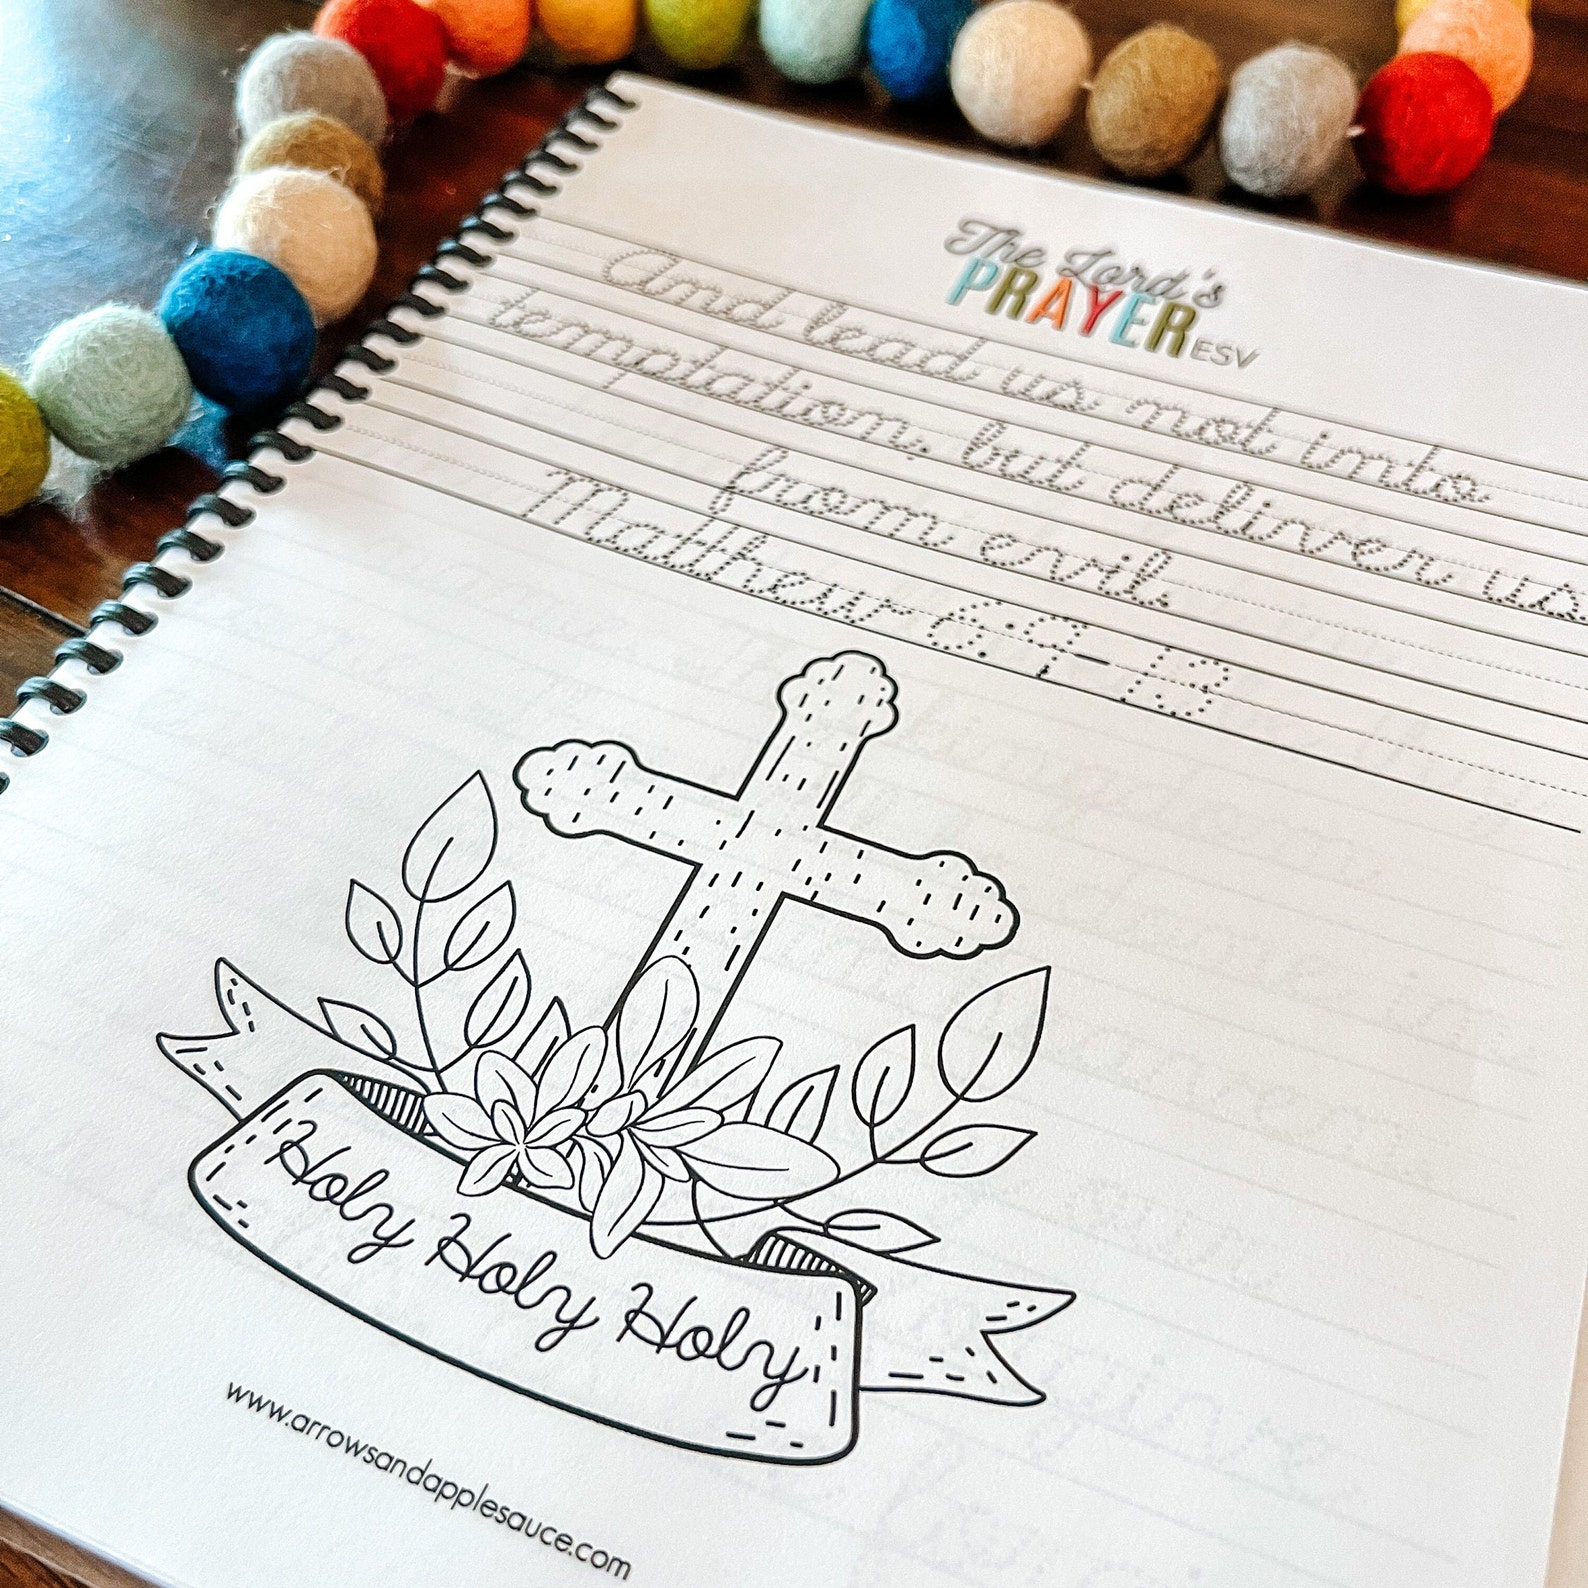 The Lord's
PRAYER ESV
And lead us not into
temptation, but deliver us
from evil.
Matthew 6:9-13
Holy Holy Holy
www.arrowsandapplesauce.com